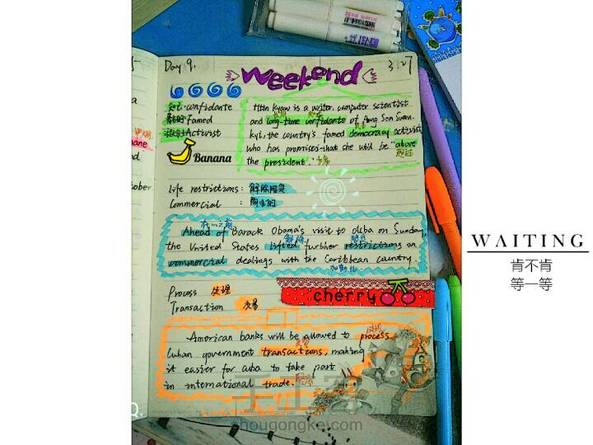 Day 9.
weekend
3.27
confidante
famed
Activist
Banana
Htin Kyaw is a writer, computer scientist
and long-time confidante of Aung San Suu
Kyi, the country's famed democracy activist
who has promises that she will be "above
the president."
Life restrictions: 解除限制
Commercial: 商业的
在…之前
Ahead of Barack Obama's visit to cuba on Sunday,
the United States lifted further restrictions on
commercial dealings with the Caribbean country.
Process 处理
Transaction 交易
cherry
American banks will be allowed to process
Cuban government transactions, making
it easier for cuba to take part
in international trade.
shougongkei.com
WAITING
肯不肯
等一等